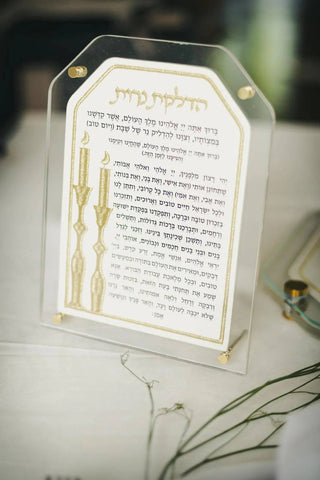 הדלקת נרות
ברוך אתה יי אלהינו מלך העולם, אשר קדשנו
במצותיו, וצונו להדליק נר של שבת (ויום טוב)
(ברוך אתה יי אלהינו מלך העולם, שהחינו וקימנו
והגיענו לזמן הזה.)
יהי רצון מלפניך, יי אלהי ואלהי אבותי,
שתחונן אותי (ואת אישי, ואת בני, ואת בנותי,
ואת אבי, ואת אמי) ואת כל קרובי, ותתן לנו
ולכל ישראל חיים טובים וארוכים, ותזכרנו
בזכרון טובה וברכה, ותפקדנו בפקודת ישועה
ורחמים, ותברכנו ברכות גדולות, ותשלים
בתינו, ותשכן שכינתך בינינו. וזכני לגדל
בנים ובני בנים חכמים ונבונים, אוהבי יי,
יראי אלהים, אנשי אמת, זרע קדש, ביי
דבקים, ומאירים את העולם בתורה ובמעשים
טובים, ובכל מלאכת עבודת הבורא. אנא
שמע את תחנתי בעת הזאת, בזכות שרה
ורבקה ורחל ולאה אמותינו, והאר נרנו
שלא יכבה לעולם ועד, והאר פניך ונושעה.
אמן.